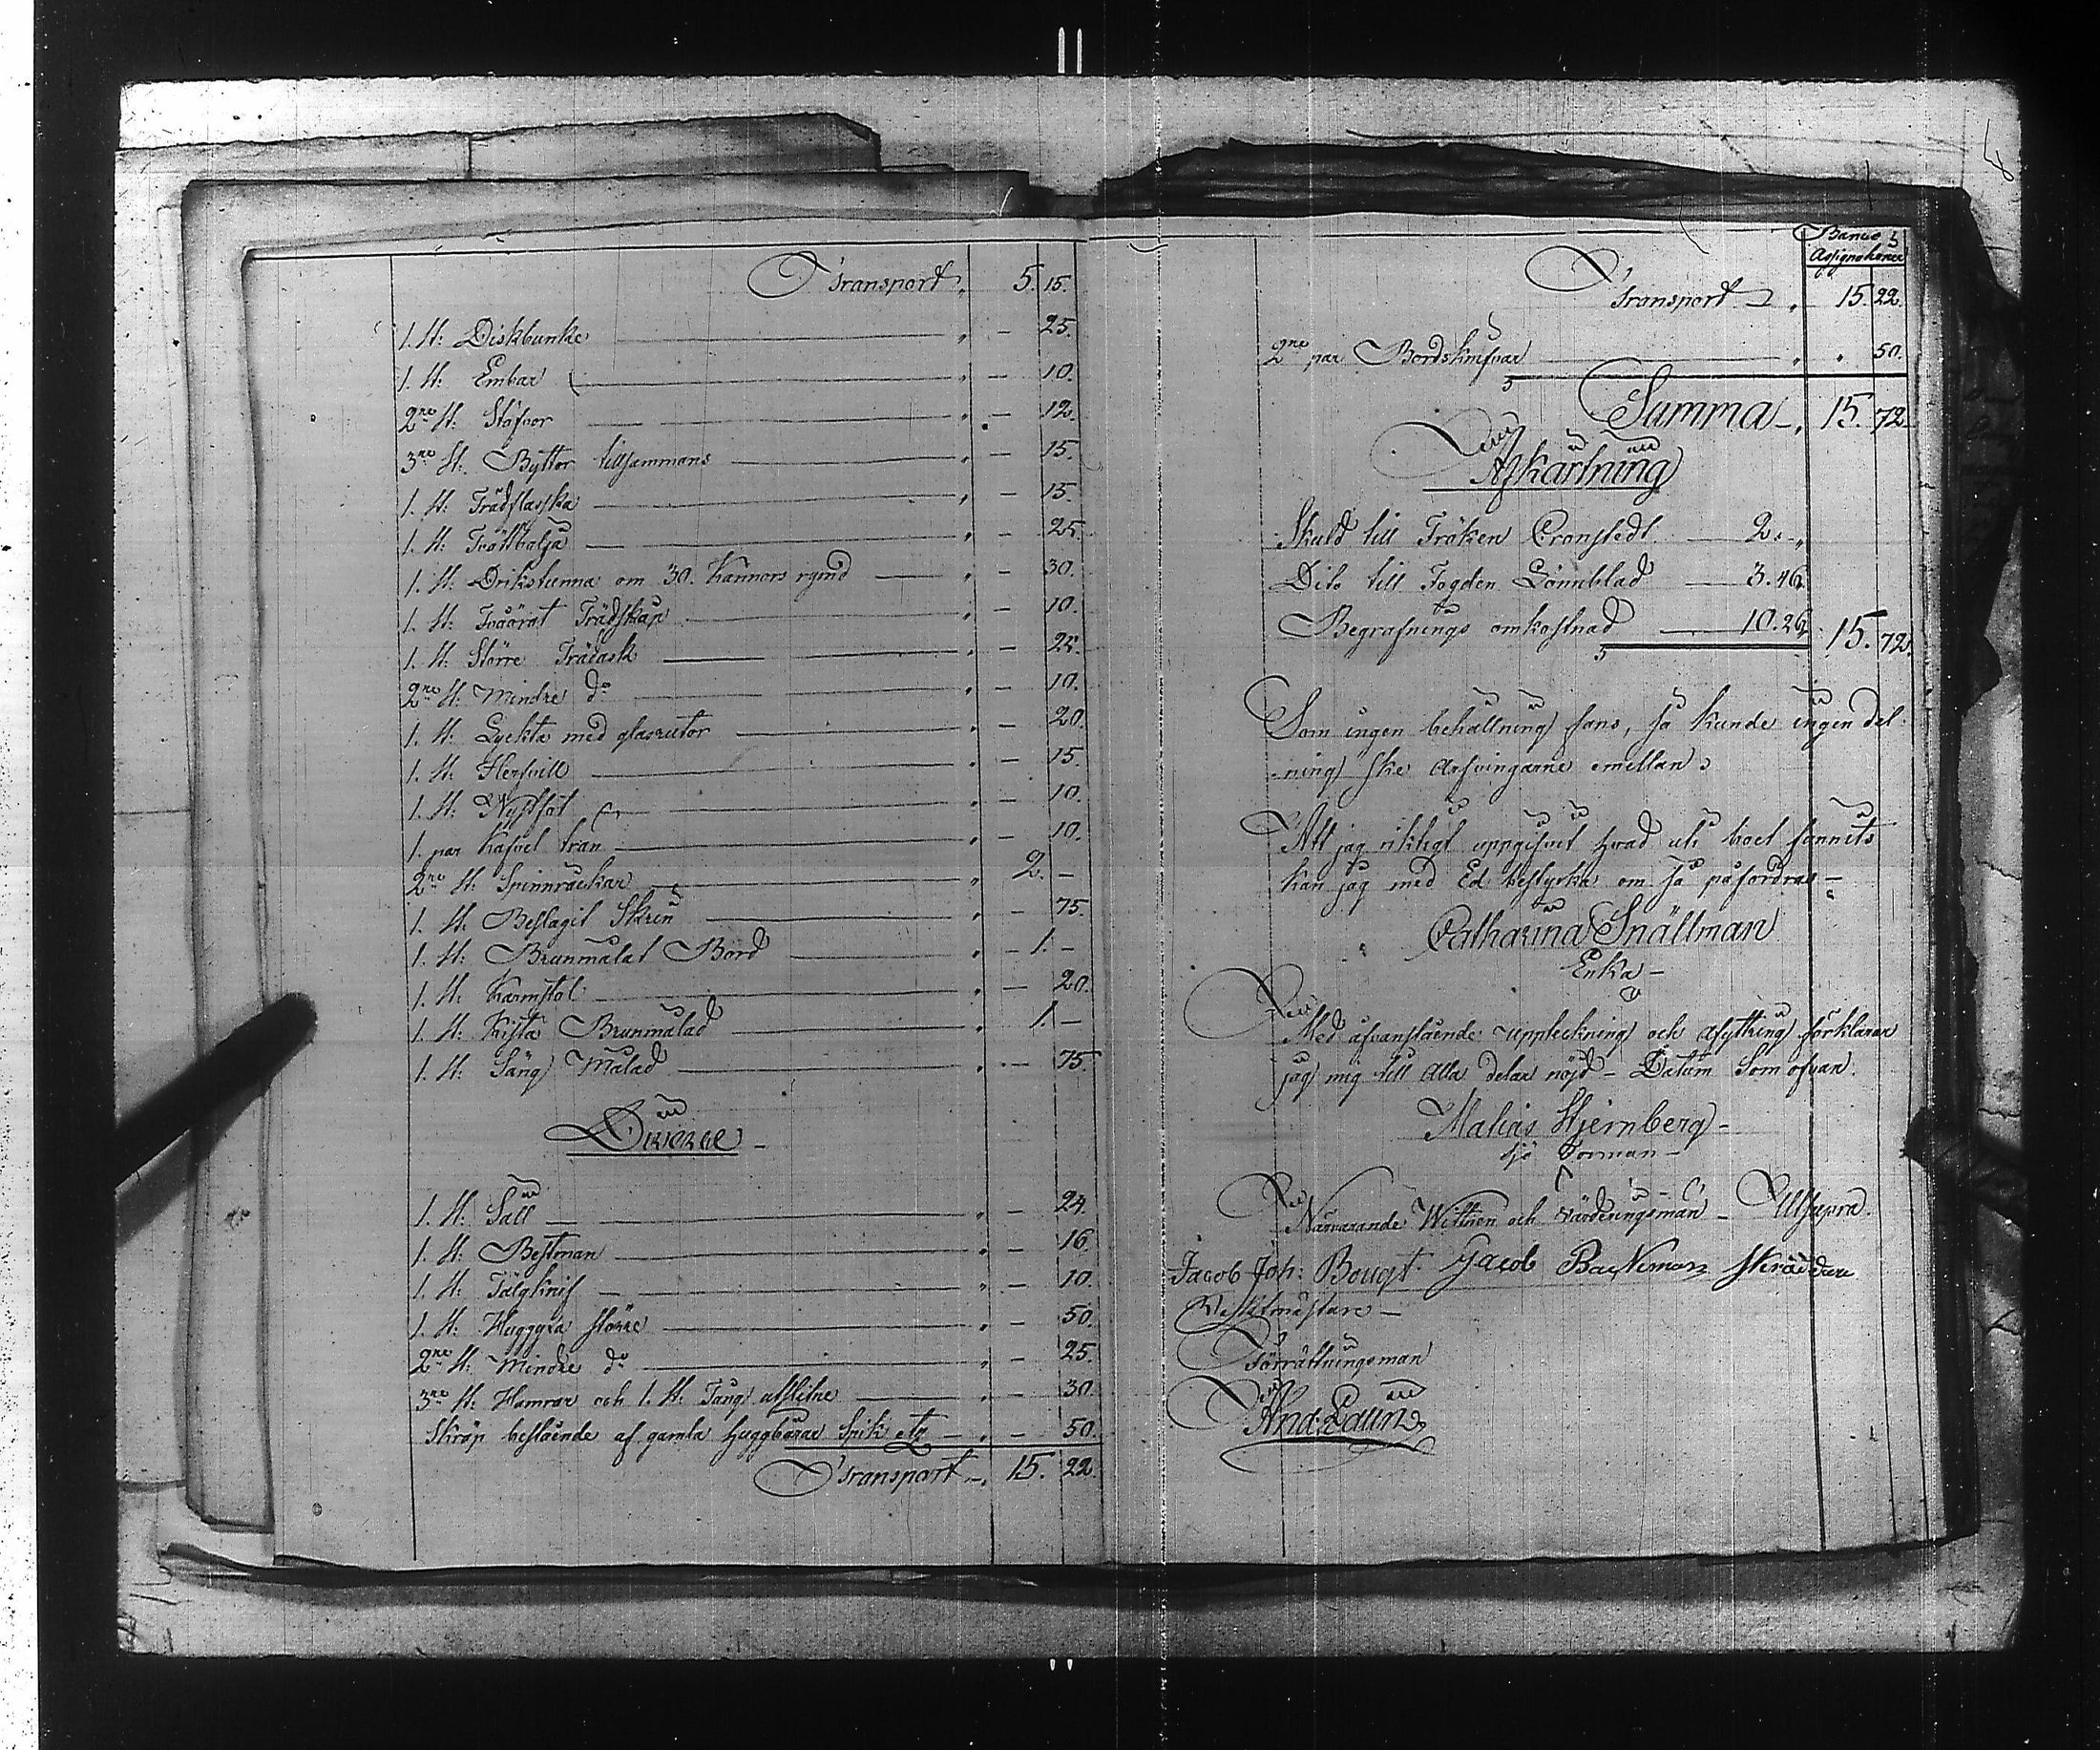 Transport „ 5. 15.
1. St: Diskbunke „ — 25.
1. St: Embar „ — 10.
2ne St: Stäfvor „ — 12.
3ne St: Byttor tillsammans „ — 15.
1. St: Trädflasska „ — 15.
1. St: Tvättbalja „ — 25.
1. St: Drikstunna om 30. kannors rymd „ — 30.
1. St: Tväärat Trädskap „ — 10.
1. St: Större Trädask „ — 25.
2ne St: Mindre do „ — 10.
1. St: Lyckta med glasrutor „ — 20.
1. St: Herfvill „ — 15.
1. St: Nystfot „ — 10.
1. par Kafvel trän „ — 10.
2ne St: Spinnräckar „ 2. —
1. St: Beslagit Skrin „ — 75.
1. St: Brunmålat Bord „ 1. —
1. St: Karmstol „ — 20.
1. St: Kista Brunmålad „ 1. —
1. St: Säng Målad „ — 75.
Diverse —
1. St: Såll „ — 24.
1. St: Bestman „ — 16.
1. St: Tälgknif „ — 10.
1. St: Huggyxa större „ — 50.
2ne St: Mindre do „ — 25.
3ne St: Hamrar och 1. St: Tång utslitne „ — 30.
Skräp bestående af gamla Huggbårar Spik etc „ — 50.
Transport „ 15. 22.
Banco
Assignationer
Transport „ 15. 22.
2ne par Bordsknifvar „ „ 50.
Summa „ 15. 72.
Afkårtning
Skuld till Fröken Cronstedt 2. „
Dito till Fogden Lönnblad 3. 46.
Begrafnings omkostnad 10. 26. 15. 72.
Som ingen behållning fans, så kunde ingen del-
-ning ske Arfvingarne emellan.
Att jag riktigt uppgifvit hvad uti boet funnits
kan jag med Ed bestyrka om så påfordras —
Catharina Snällman
Enka —
Med ofvanstående uppteckning och afyttring förklarar
jag mig till Alla delar nöjd — Datum Som ofvan.
Matias Stjernberg —
Sjö Torman —
Närvarande Wittnen och värderingsmän — Utsupra.
Jacob Joh: Bougt. Jacob Backman skräddare
Verktmästare —
Förrättningsman
And: Edlun